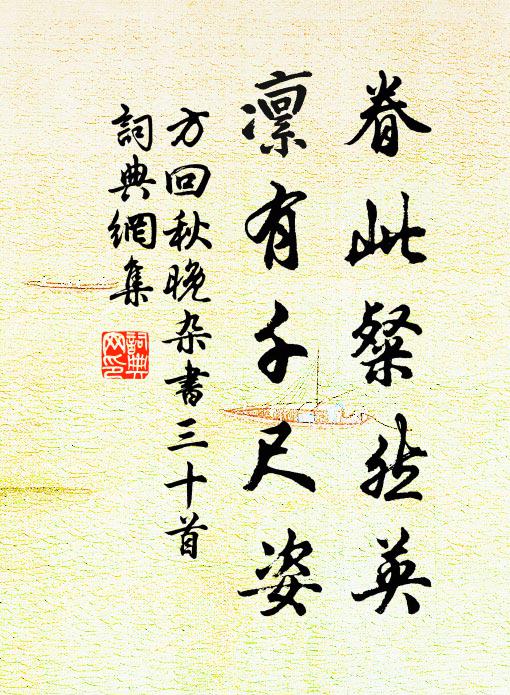 眷此粲然英
凛有千尺姿
方回秋晚杂書三十首
詞典網集
詞典
网印